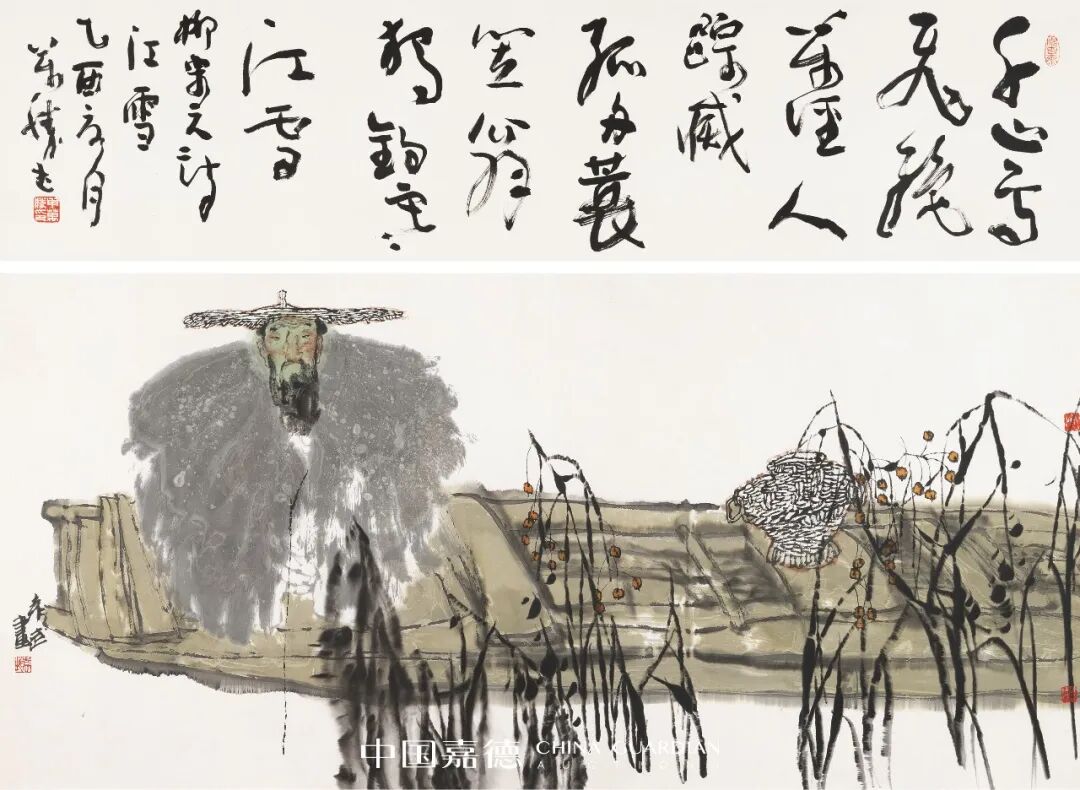 千山鳥
飛絶
萬徑人
踪滅
孤舟蓑
笠翁
独釣寒
江雪
柳宗元詩
江雪
乙酉月
中国嘉德 CHINA GUARDIAN
AUCTIONS